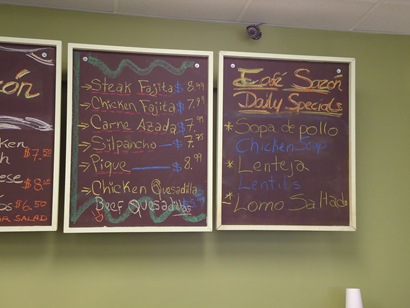 zón
cken
$7.50
ese
$8.
os $6.50
OR SALAD
Steak Fajita $8.99
Chicken Fajita $7.99
Carne Azada $7.99
Silpancho $7.75
Pique $8.99
Chicken Quesadilla
Beef Quesadillas
Café Sazón
Daily Specials
*Sopa de pollo
Chicken Soup
*Lenteja
Lentils
*Lomo Saltado